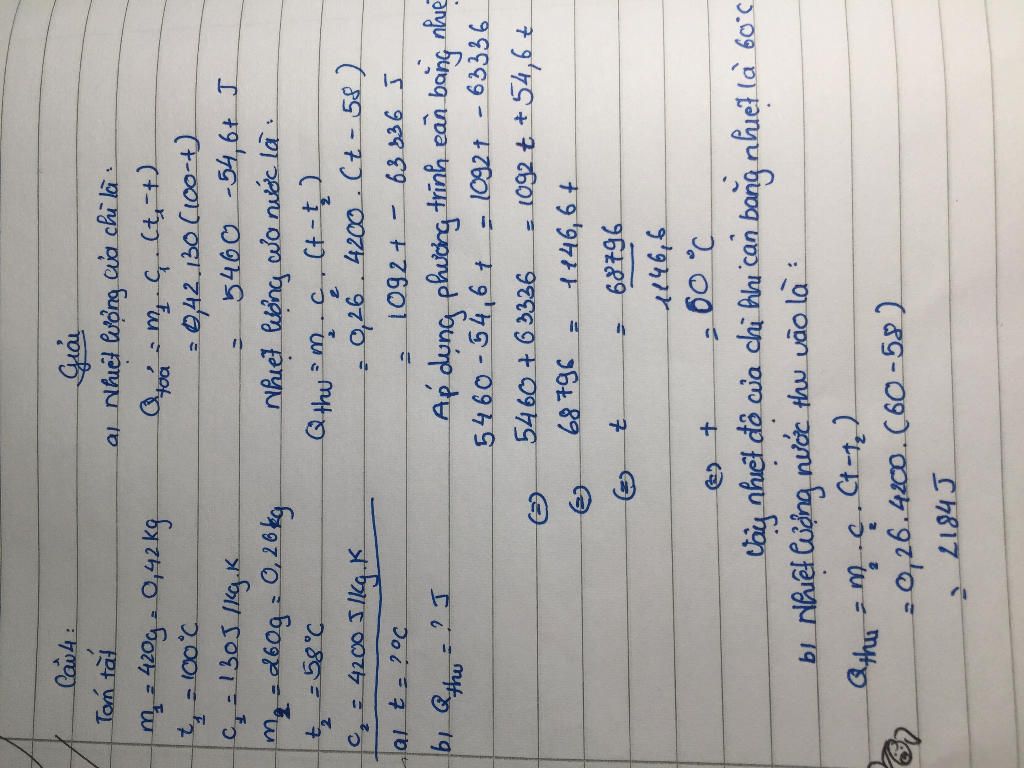 Câu 4:
Tóm tắt
m₁ = 420g = 0,42kg
t₁ = 100°C
c₁ = 130J/kg.K
m₂ = 260g = 0,26kg
t₂ = 58°C
c₂ = 4200J/kg.K
a) t = ?°C
b) Q thu = ? J
Giải
a) Nhiệt lượng của chì là:
Q toả = m₁. c₁. (t₁ - t)
= 0,42.130(100-t)
= 5460 - 54,6t J
Nhiệt lượng của nước là:
Q thu = m₂. c₂. (t - t₂)
= 0,26. 4200. (t - 58)
= 1092t - 63336 J
Áp dụng phương trình cân bằng nhiệ
5460 - 54,6t = 1092t - 63336
(=) 5460 + 63336 = 1092t + 54,6t
(=) 68796 = 1146,6t
(=) t = 68796
1146,6
(=) t = 60°C
Vậy nhiệt độ của chì khi cân bằng nhiệt là 60°C
b) Nhiệt lượng nước thu vào là:
Q thu = m₂. c₂. (t - t₂)
= 0,26. 4200. (60 - 58)
= 2184J